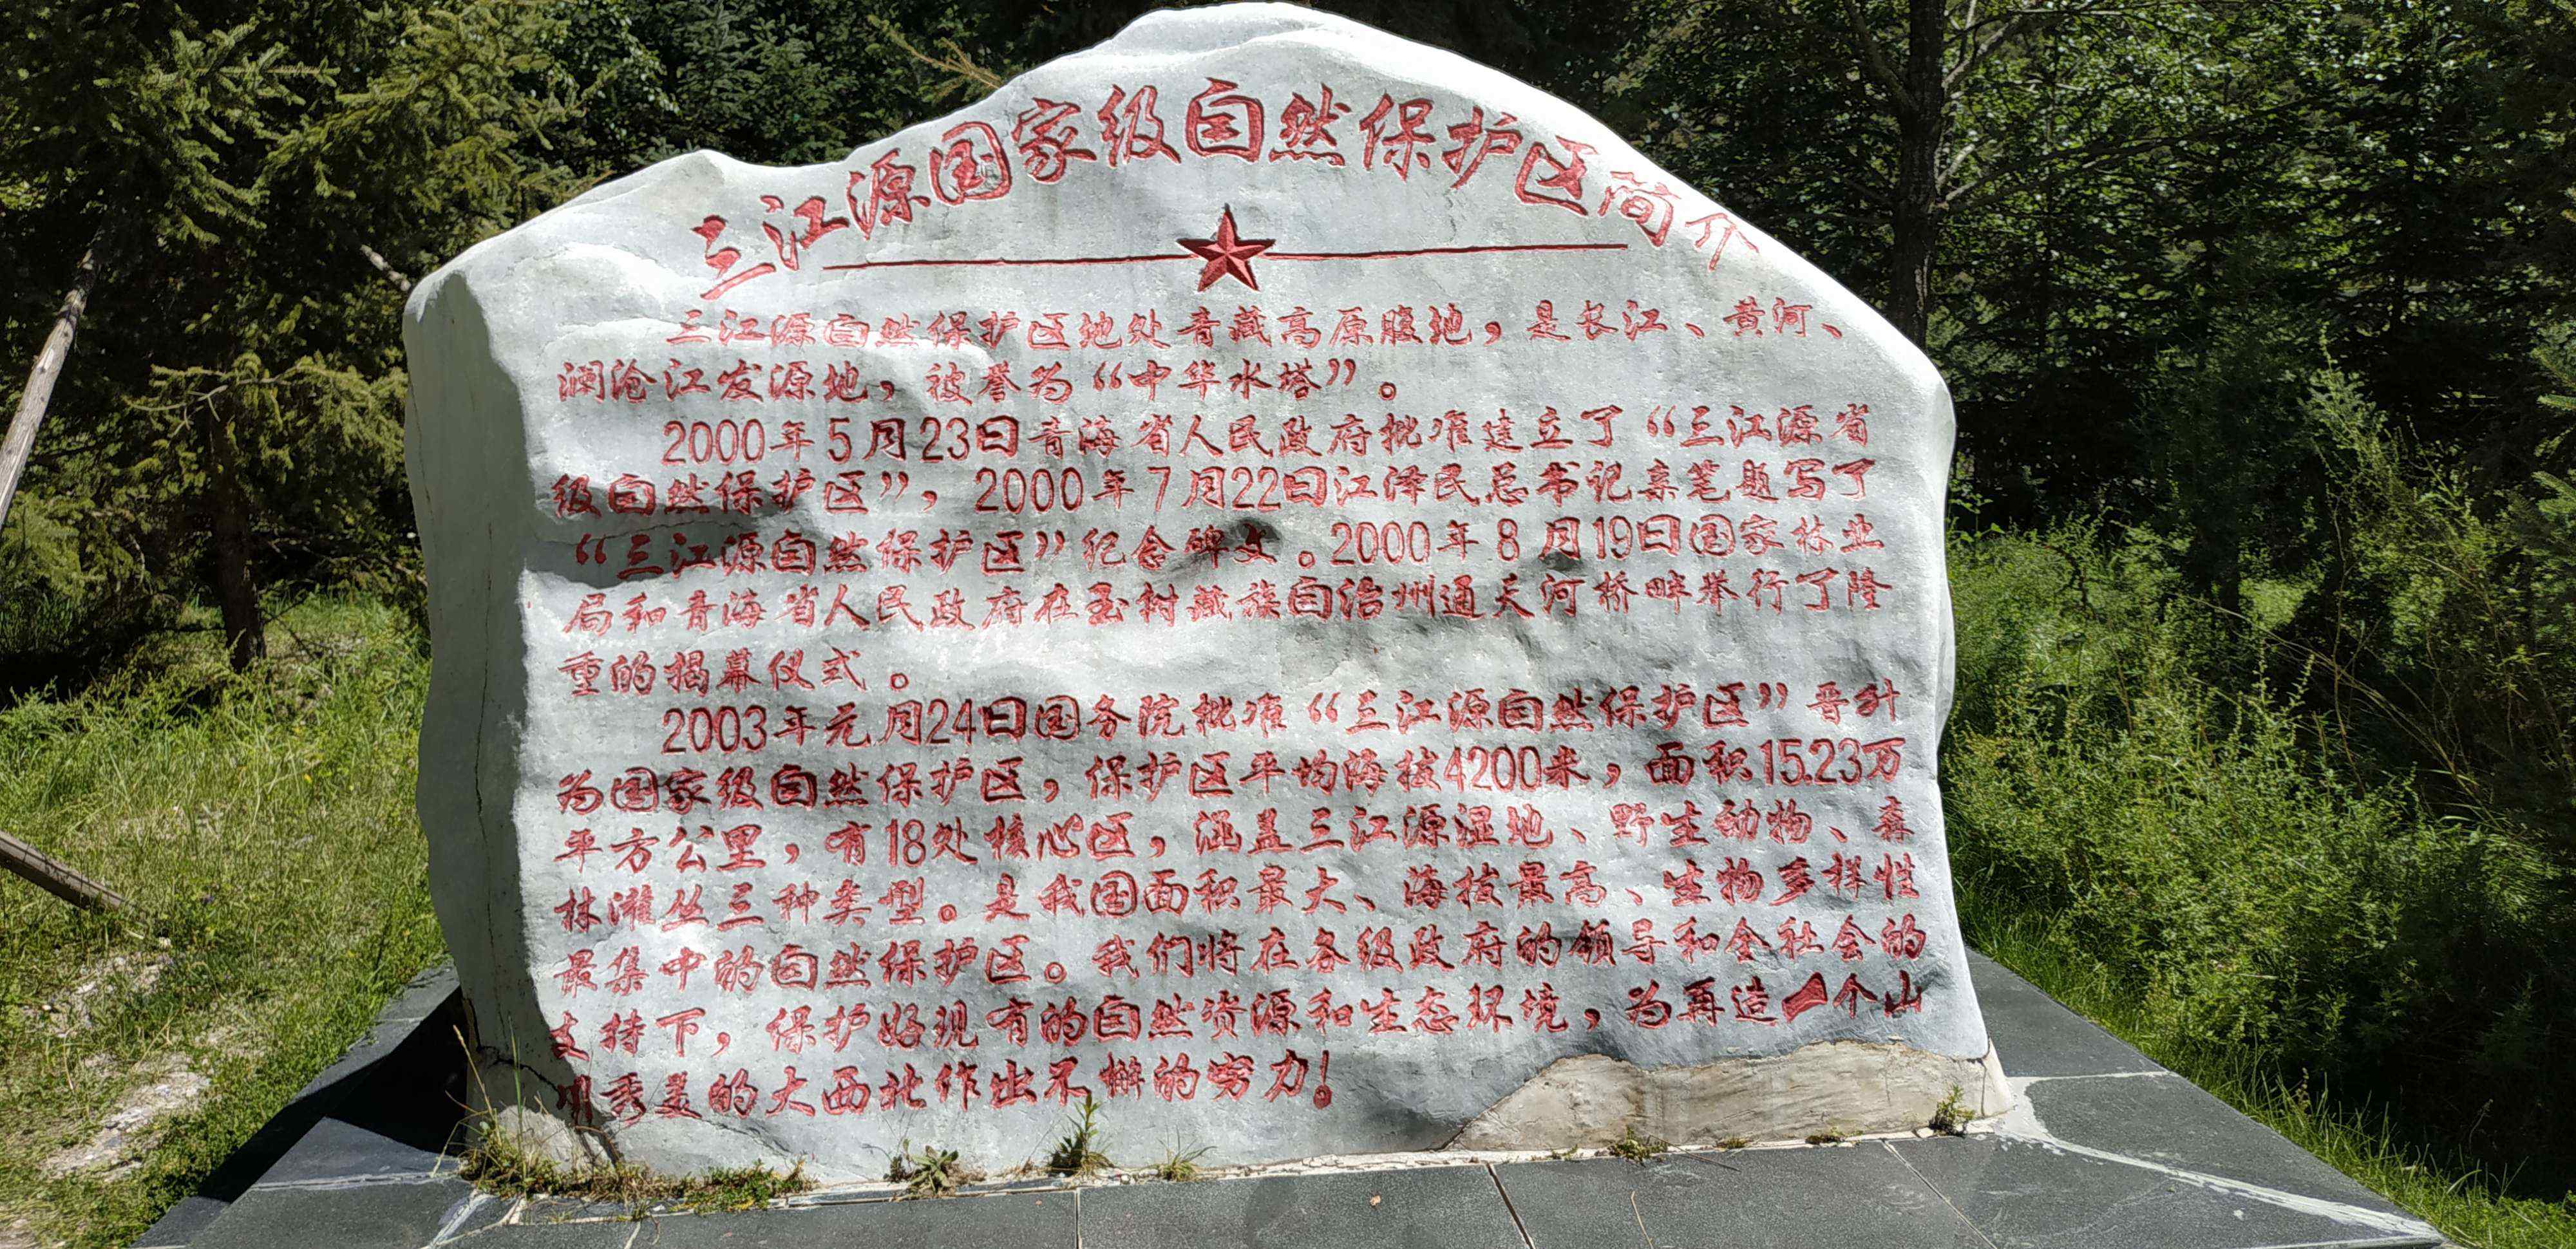 三江源国家级自然保护区简介
三江源自然保护区地处青藏高原腹地，是长江、黄河、
澜沧江发源地，被誉为“中华水塔”。
2000年5月23日青海省人民政府批准建立了“三江源省
级自然保护区”，2000年7月22日江泽民总书记亲笔题写了
“三江源自然保护区”纪念碑文。2000年8月19日国家林业
局和青海省人民政府在玉树藏族自治州通天河桥畔举行了隆
重的揭幕仪式。
2003年元月24日国务院批准“三江源自然保护区”晋升
为国家级自然保护区，保护区平均海拔4200米，面积15.23万
平方公里，有18处核心区，涵盖三江源湿地、野生动物、森
林灌丛三种类型。是我国面积最大、海拔最高、生物多样性
最集中的自然保护区。我们将在各级政府的领导和全社会的
支持下，保护好现有的自然资源和生态环境，为再造一个山
川秀美的大西北作出不懈的努力！